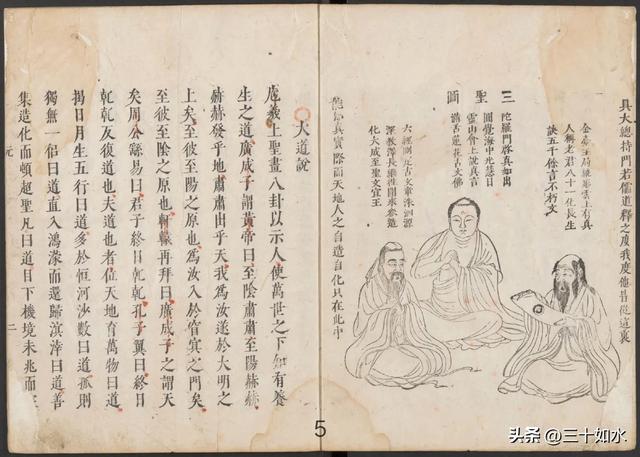 具大總持門若儒道釋之度我度他皆從這裏
金臺玉局繞彤雲上有真
人稱老君八十一化長生
訣五千餘言不朽文
三聖圖
陀羅門啓真如出
圓覺海中光慧日
靈山會上說真言
滿舌蓮花古文佛
六經刪定古文章洙泗源
深教澤長繼往開來參造
化大成至聖文宣王
能知真實際而天地人之自造自化只在此中
大道說
庖羲上聖畫八卦以示人使萬世之下知有養
生之道廣成子謂黃帝曰至陰肅肅至陽赫赫
赫赫發乎地肅肅出乎天我爲汝遂於大明之
上矣至彼至陽之原也爲汝入於窅冥之門矣
至彼至陰之原也軒轅再拜曰廣成子之謂天
矣周公繇易曰君子終日乾乾孔子翼曰終日
乾乾反復道也夫道也者位天地育萬物曰道
揭日月生五行曰道多於恒河沙數曰道孤則
獨無一侶曰道直入鴻濛而還歸溟涬曰道善
集造化而頓超聖凡曰道目下機境未兆而
元
二
5
头条 @三十如水